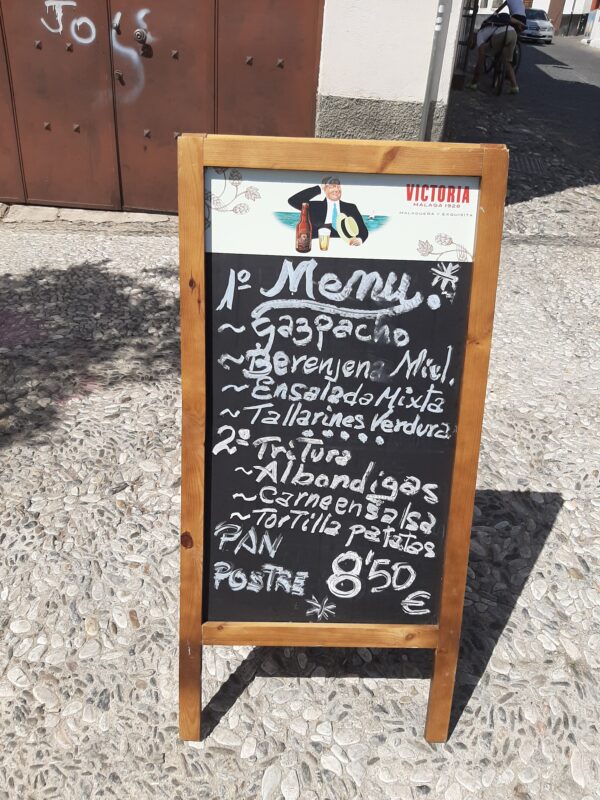 Jo
VICTORIA
MÁLAGA 1928
MALAGUEÑA Y EXQUISITA
1º Menu.
~ Gazpacho
~ Berenjena Miel.
~ Ensalada Mixta
~ Tallarines Verdura
2º Tritura
~ Albondigas
~ Carne en Salsa
~ Tortilla patatas
PAN
POSTRE 8'50
€